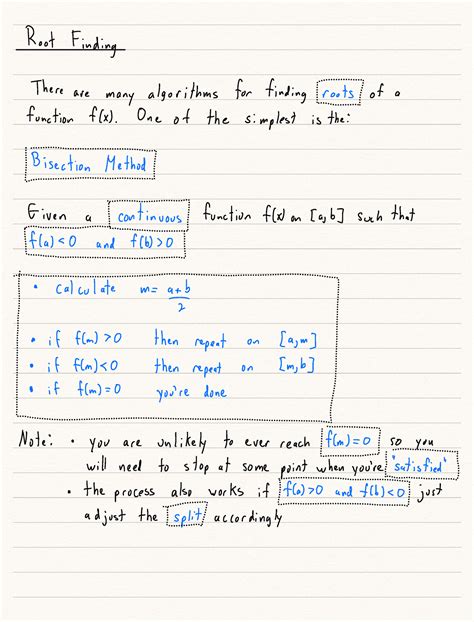 Root Finding
There are many algorithms for finding roots of a
function f(x). One of the simplest is the:
Bisection Method
Given a continuous function f(x) on [a,b] such that
f(a)<0 and f(b)>0
• calculate m = a+b
2
• if f(m)>0 then repeat on [a,m]
• if f(m)<0 then repeat on [m,b]
• if f(m)=0 you're done
Note: • you are unlikely to ever reach f(m)=0 so you
will need to stop at some point when you're "satisfied"
• the process also works if f(a)>0 and f(b)<0 just
adjust the split accordingly